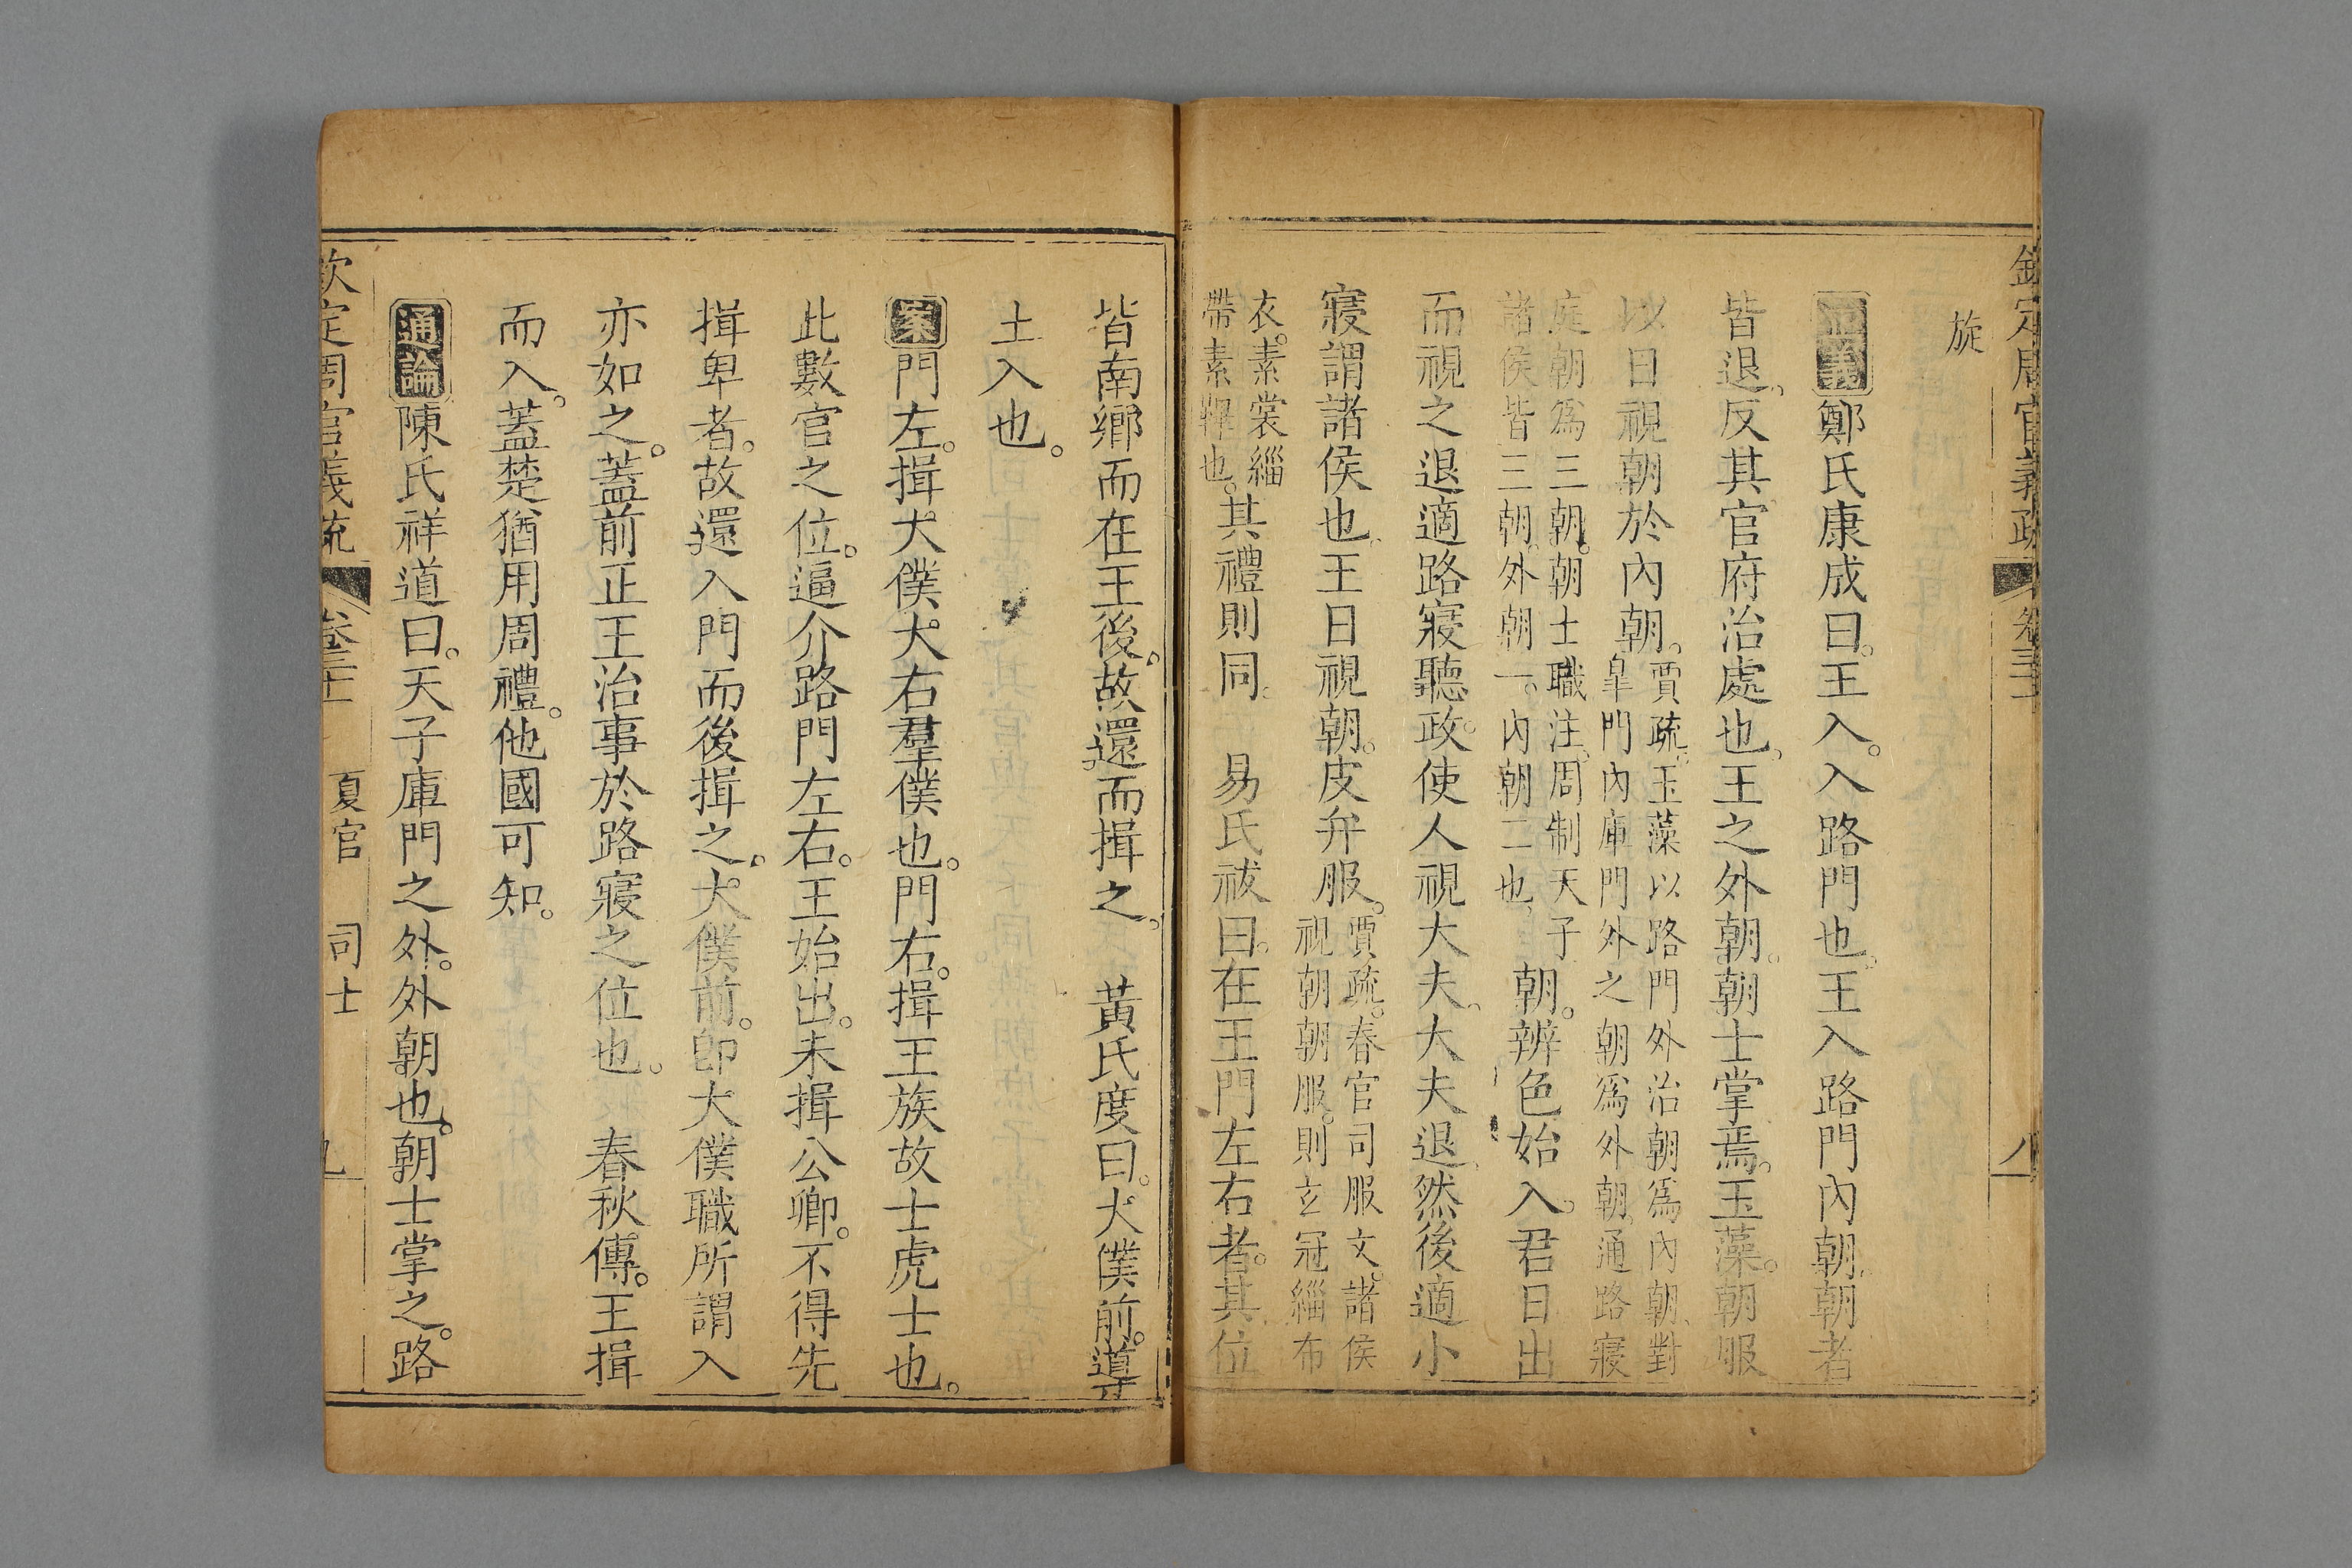 欽定周官義疏 卷三十 八
旋
正義鄭氏康成曰。王入。入路門也。王入路門內朝。朝者
皆退。反其官府治處也。王之外朝。朝士掌焉。玉藻。朝服
以日視朝於內朝。
賈疏。玉藻以路門外治朝爲內朝。對
皐門內庫門外之朝爲外朝。通路寢
庭朝爲三朝。朝士職注。周制天子
諸侯皆三朝。外朝一。內朝二也。
朝。辨色始入。君日出
而視之退適路寢聽政。使人視大夫。大夫退。然後適小
寢謂諸侯也。王日視朝。皮弁服。
賈疏。春官司服文。諸侯
視朝朝服。則玄冠緇布
衣。素裳緇
帶素韠也。
其禮則同。 易氏祓曰。在王門左右者。其位
皆南鄉而在王後。故還而揖之。 黃氏度曰。大僕前。導
士入也。
案門左。揖大僕。大右羣僕也。門右。揖王族故士虎士也。
此數官之位。逼介路門左右。王始出。未揖公卿。不得先
揖卑者。故還入門而後揖之。大僕前。卽大僕職所謂入
亦如之。蓋前正王治事於路寢之位也。 春秋傳。王揖
而入。蓋楚猶用周禮。他國可知。
通論陳氏祥道曰。天子庫門之外。外朝也。朝士掌之。路
欽定周官義疏 卷三十 夏官 司士 九